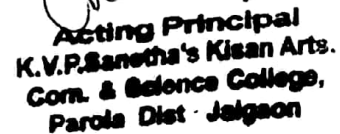 Acting Principal
K.V.P.Sanstha's Kisan Arts.
Com. & Science College,
Parola Dist - Jalgaon